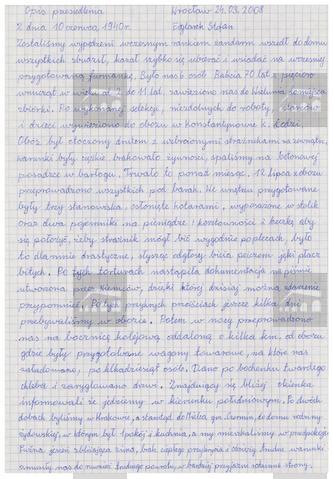 Opis przesiedlenia Wrocław 24.03.2008
Z dnia 10 czerwca, 1940r. Stefan
Zostaliśmy wypędzeni wczesnym rankiem żandarm wszedł do domu
wszystkich zbudził, kazał szybko się ubierać i wsiadać na wcześniej
przygotowaną furmankę. Było nas 6 osób Babcia 70 lat, pięcioro
wnucząt w wieku od 2 do 11 lat, zawieziono nas do Wielunia miejsca
zbiórki. Po wykonanej selekcji, niezdolnych do roboty, starców
i dzieci wywieziono do obozu w Konstantynowie k. Łodzi.
Obóz był otoczony drutem z uzbrojonymi strażnikami na zewnątrz,
warunki były ciężkie brakowało żywności, spaliśmy na betonowej
posadzce w barłogu. Trwało to ponad miesiąc, 12 lipca z obozu
przeprowadzono wszystkich pod barak. Na wnętrzu przygotowane
były trzy stanowiska, osłonięte kotarami, wyposażone w stolik
oraz dwa pojemniki na pieniądze i kosztowności i beczkę aby
się położyć, żeby strażnik mógł bić wygodnie po plecach, było
to dla mnie drastyczne, słysząc odgłosy bicia pejczem jęki płacz
bitych. Po tych torturach nastąpiła dokumentacja na piśmie
utworzona przez niemców, dzięki której dzisiaj można zdarzenie
przypomnieć. Po tych przykrych przejściach jeszcze kilka dni
przebywaliśmy w obozie. Potem w nocy przeprowadzono
nas na bocznicę kolejową oddaloną o kilka km. od obozu
gdzie były przygotowane wagony towarowe, na które nas
załadowano, po kilkadziesiąt osób. Dano po bochenku twardego
chleba i zaryglowano drzwi. Znajdujący się bliżej okienka
informowali że jedziemy w kierunku południowym. Po dwóch
dobach byliśmy w Krakowie, a stamtąd do Mielca gm. do domu rodziny
żydowskiej w którym był 1 pokój i kuchnia, a my mieszkaliśmy w przedpokoju
Późna jesień zbliżająca zima, brak ciepłego przyjęcia i czarny brudu warunki
zmusiły nas do powrotu, w bardziej przyjazne rodzinne strony.